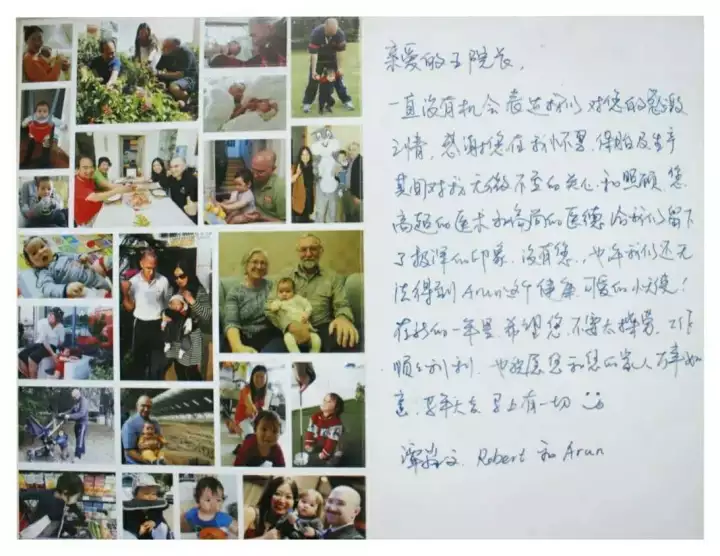 亲爱的王院长，
一直没有机会表达我们对您的感激
之情，感谢您在我怀孕、保胎及生产
期间对我无微不至的关心和照顾，您
高超的医术和高尚的医德给我们留下
了极深的印象，没有您，也许我们还无
法得到Arun这个健康、可爱的小天使！
在新的一年里，希望您不要太操劳，工作
顺顺利利，也祝愿您和您的家人万事如
意，羊年大吉，马上有一切
Robert 和 Arun